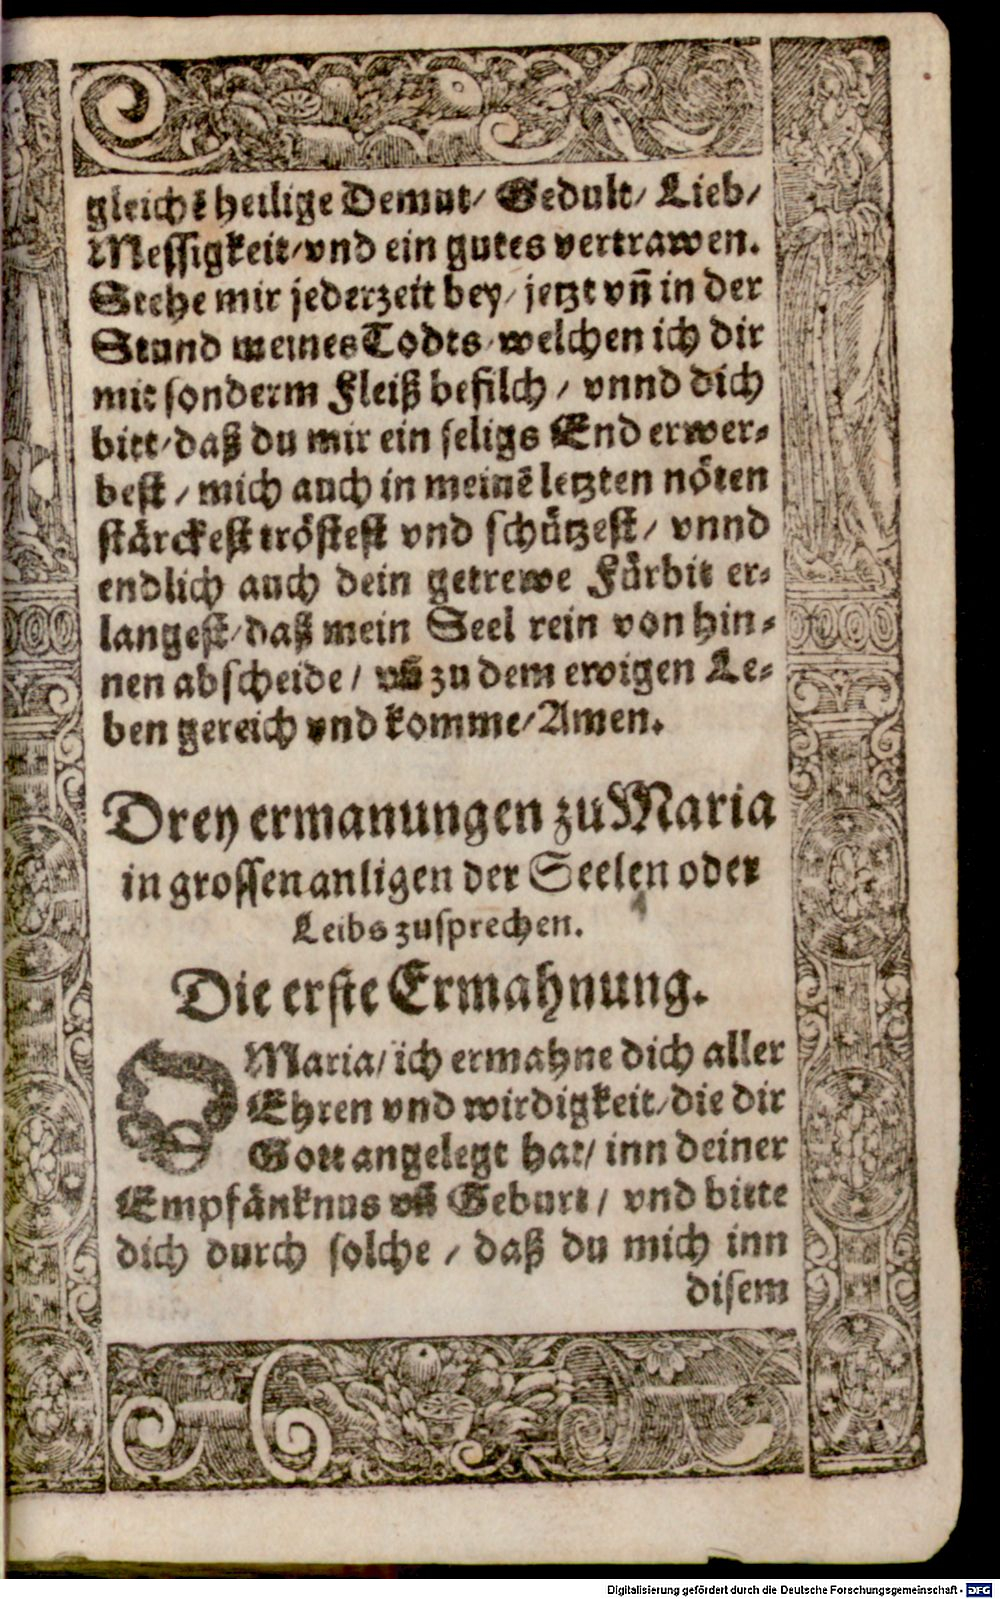 gleichē heilige Demut/ Gedult/ Lieb/
Messigkeit/ vnd ein gutes vertrawen.
Stehe mir jederzeit bey/ jetzt vn̄ in der
Stund meines Todts/ welchen ich dir
mit sonderm Fleiß befilch/ vnnd dich
bitt/ daß du mir ein seligs End erwer⸗
best/ mich auch in meinē letzten nöten
stärckest tröstest vnd schützest/ vnnd
endlich auch dein getrewe Fürbit er⸗
langest/ daß mein Seel rein von hin⸗
nen abscheide/ vn̄ zu dem ewigen Le⸗
ben gereich vnd komme/ Amen.
Drey ermanungen zu Maria
in grossen anligen der Seelen oder
Leibs zusprechen.
Die erste Ermahnung.
O Maria/ ich ermahne dich aller
Ehren vnd wirdigkeit/ die dir
Gott angelegt hat/ inn deiner
Empfänknus vn̄ Geburt/ vnd bitte
dich durch solche/ daß du mich inn
disem
Digitalisierung gefördert durch die Deutsche Forschungsgemeinschaft - DFG